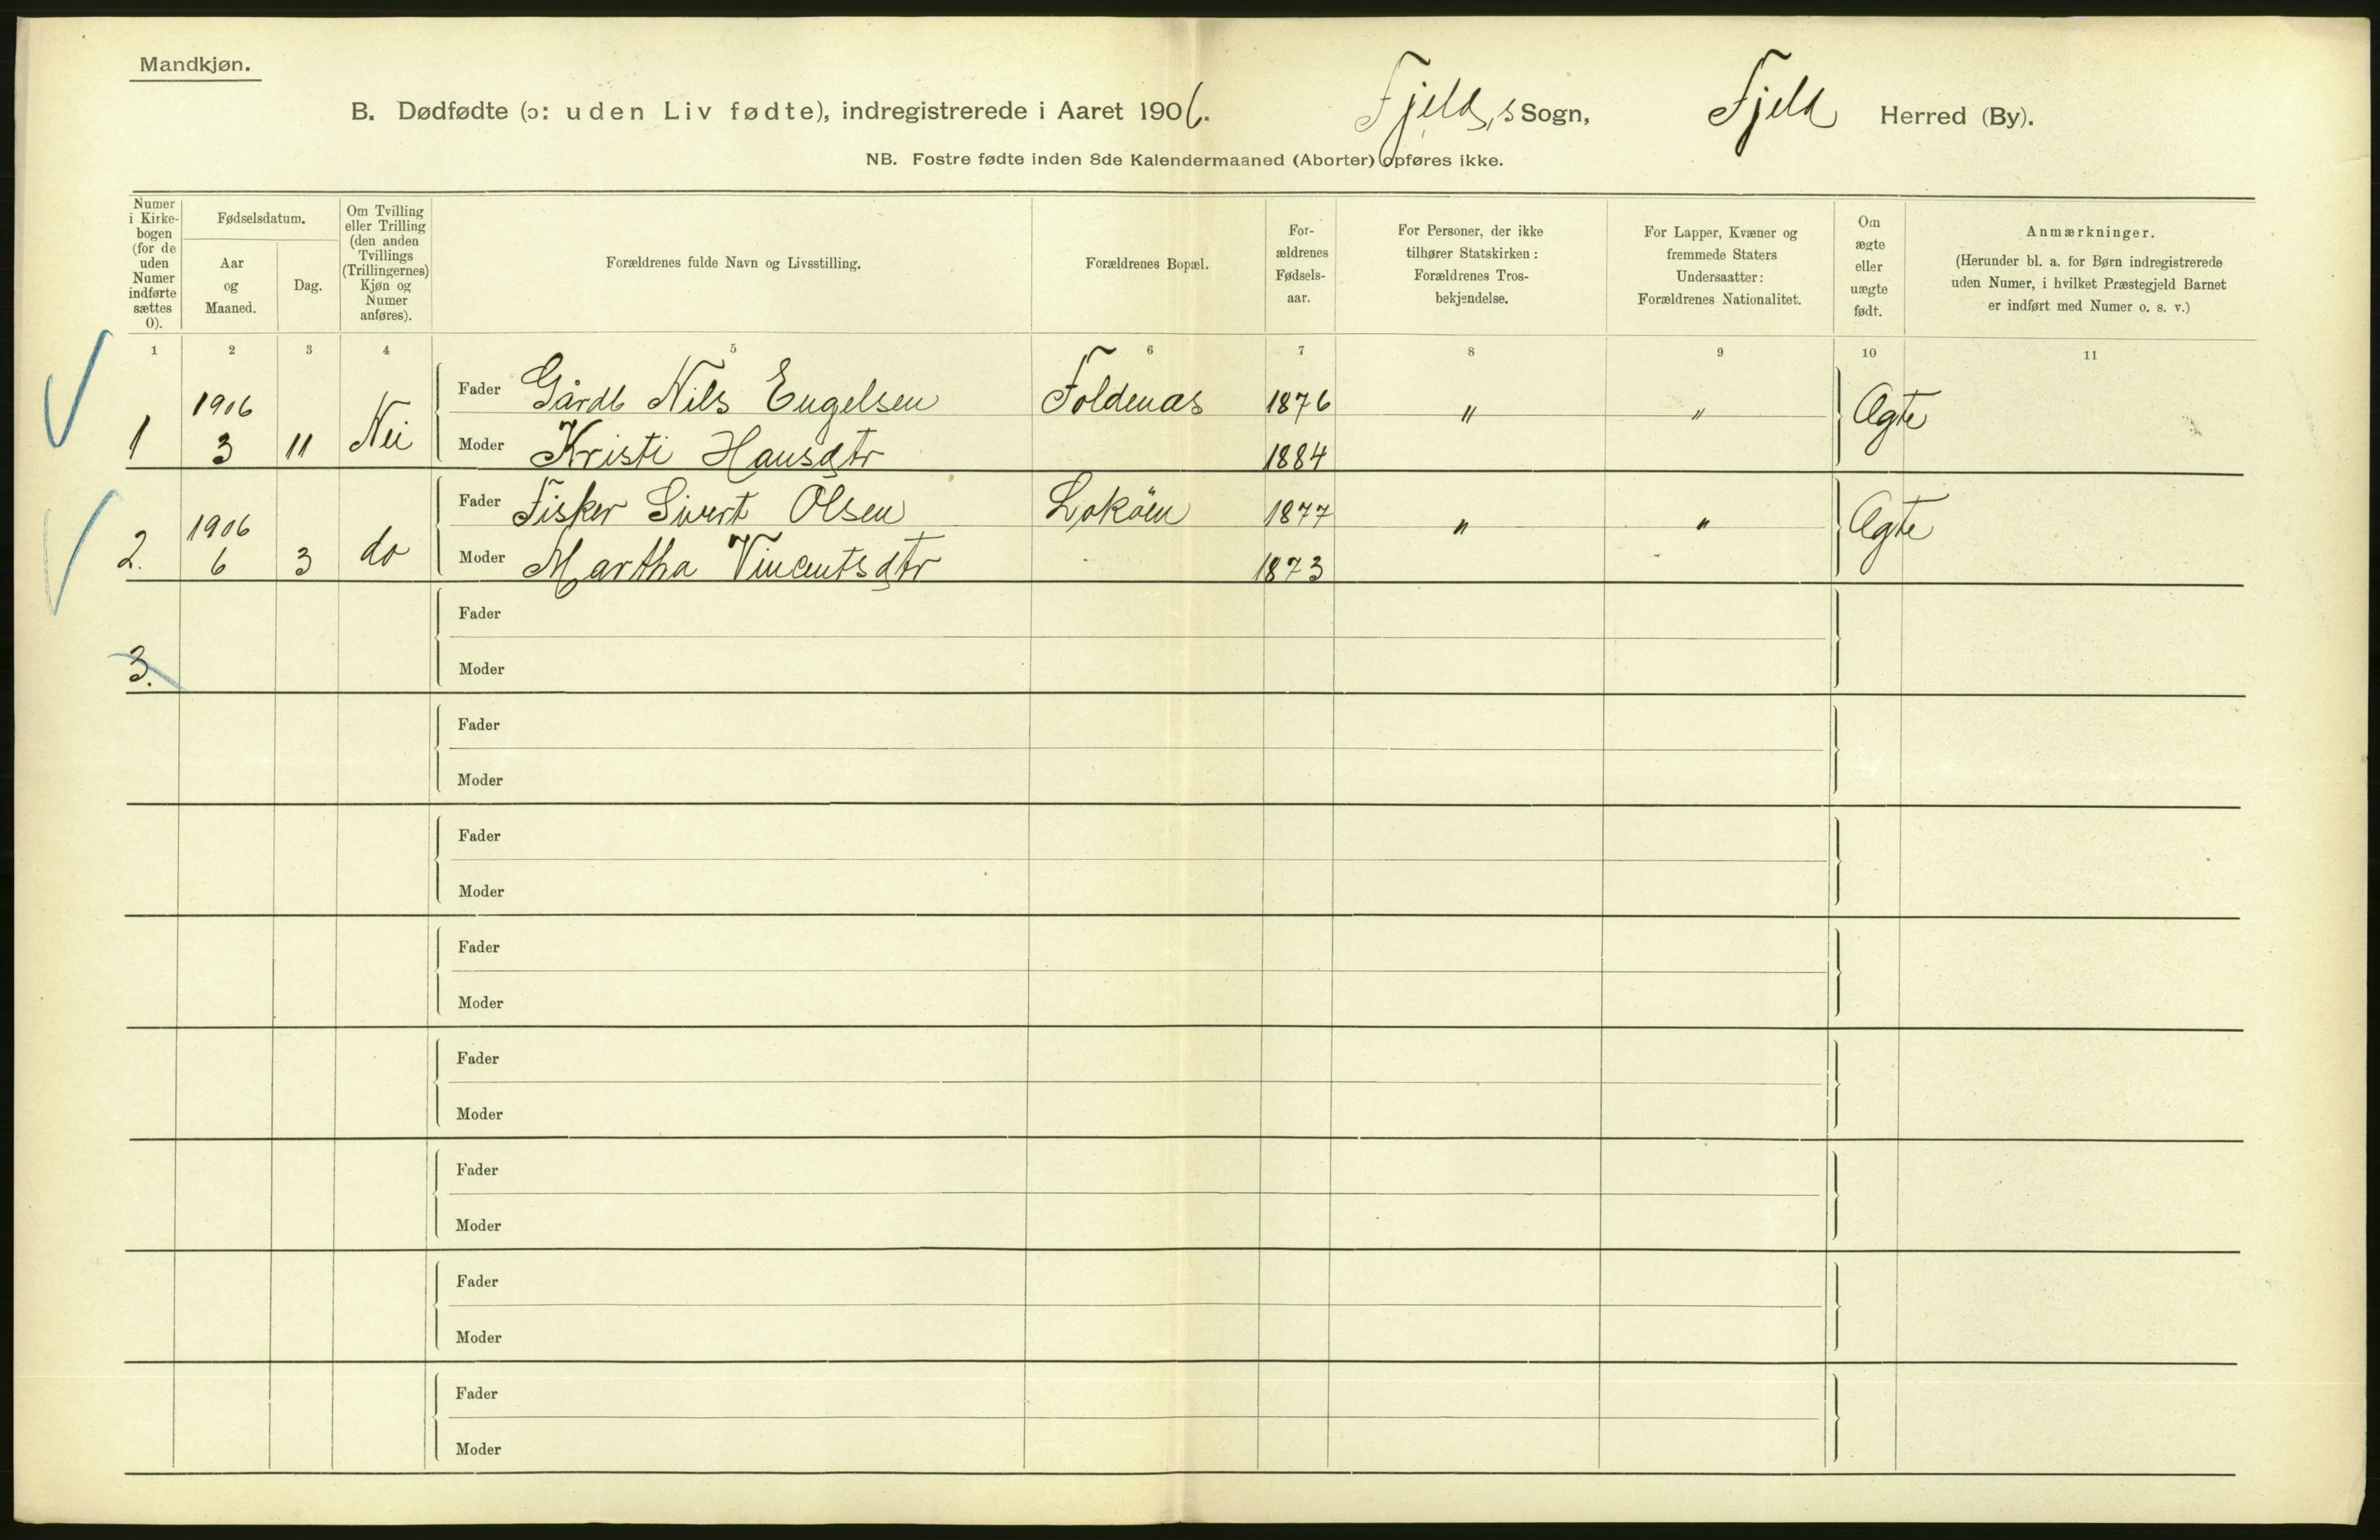 Mandkjøn.
B. Dødfødte (ɔ: uden Liv fødte), indregistrerede i Aaret 1906. Fjeld s Sogn, Fjeld Herred (By).
NB. Fostre fødte inden 8de Kalendermaaned (Aborter) opføres ikke.
Numer i Kirkebogen (for de uden Numer indførte sættes 0).
Fødselsdatum.
Aar og Maaned.
Dag.
Om Tvilling eller Trilling (den anden Tvillings (Trillingernes) Kjøn og Numer anføres).
Forældrenes fulde Navn og Livsstilling.
Forældrenes Bopæl.
For-ældrenes Fødsels-aar.
For Personer, der ikke tilhører Statskirken: Forældrenes Tros-bekjendelse.
For Lapper, Kvæner og fremmede Staters Undersaatter: Forældrenes Nationalitet.
Om ægte eller uægte født.
Anmærkninger.
(Herunder bl. a. for Børn indregistrerede uden Numer, i hvilket Præstegjeld Barnet er indført med Numer o. s. v.)
1 2 3 4 5 6 7 8 9 10 11
1906 Fader Gårdb Nils Engelsen Foldenæs 1876 " " Ægte
1 3 11 Nei Moder Kristi Hansdtr 1884
1906 Fader Fisker Sivert Olsen Lokøen 1877 " " Ægte
2. 6 3 do Moder Martha Vincentsdtr 1873
Fader
3. Moder
Fader
Moder
Fader
Moder
Fader
Moder
Fader
Moder
Fader
Moder
Fader
Moder
Fader
Moder